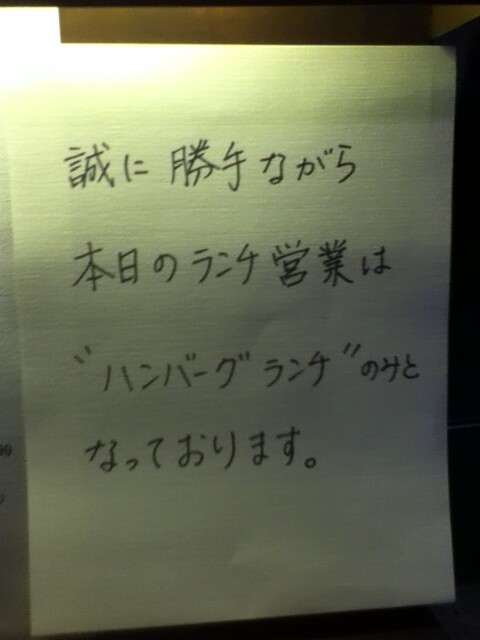 誠に勝手ながら
本日のランチ営業は
〝ハンバーグランチ〟のみと
なっております。